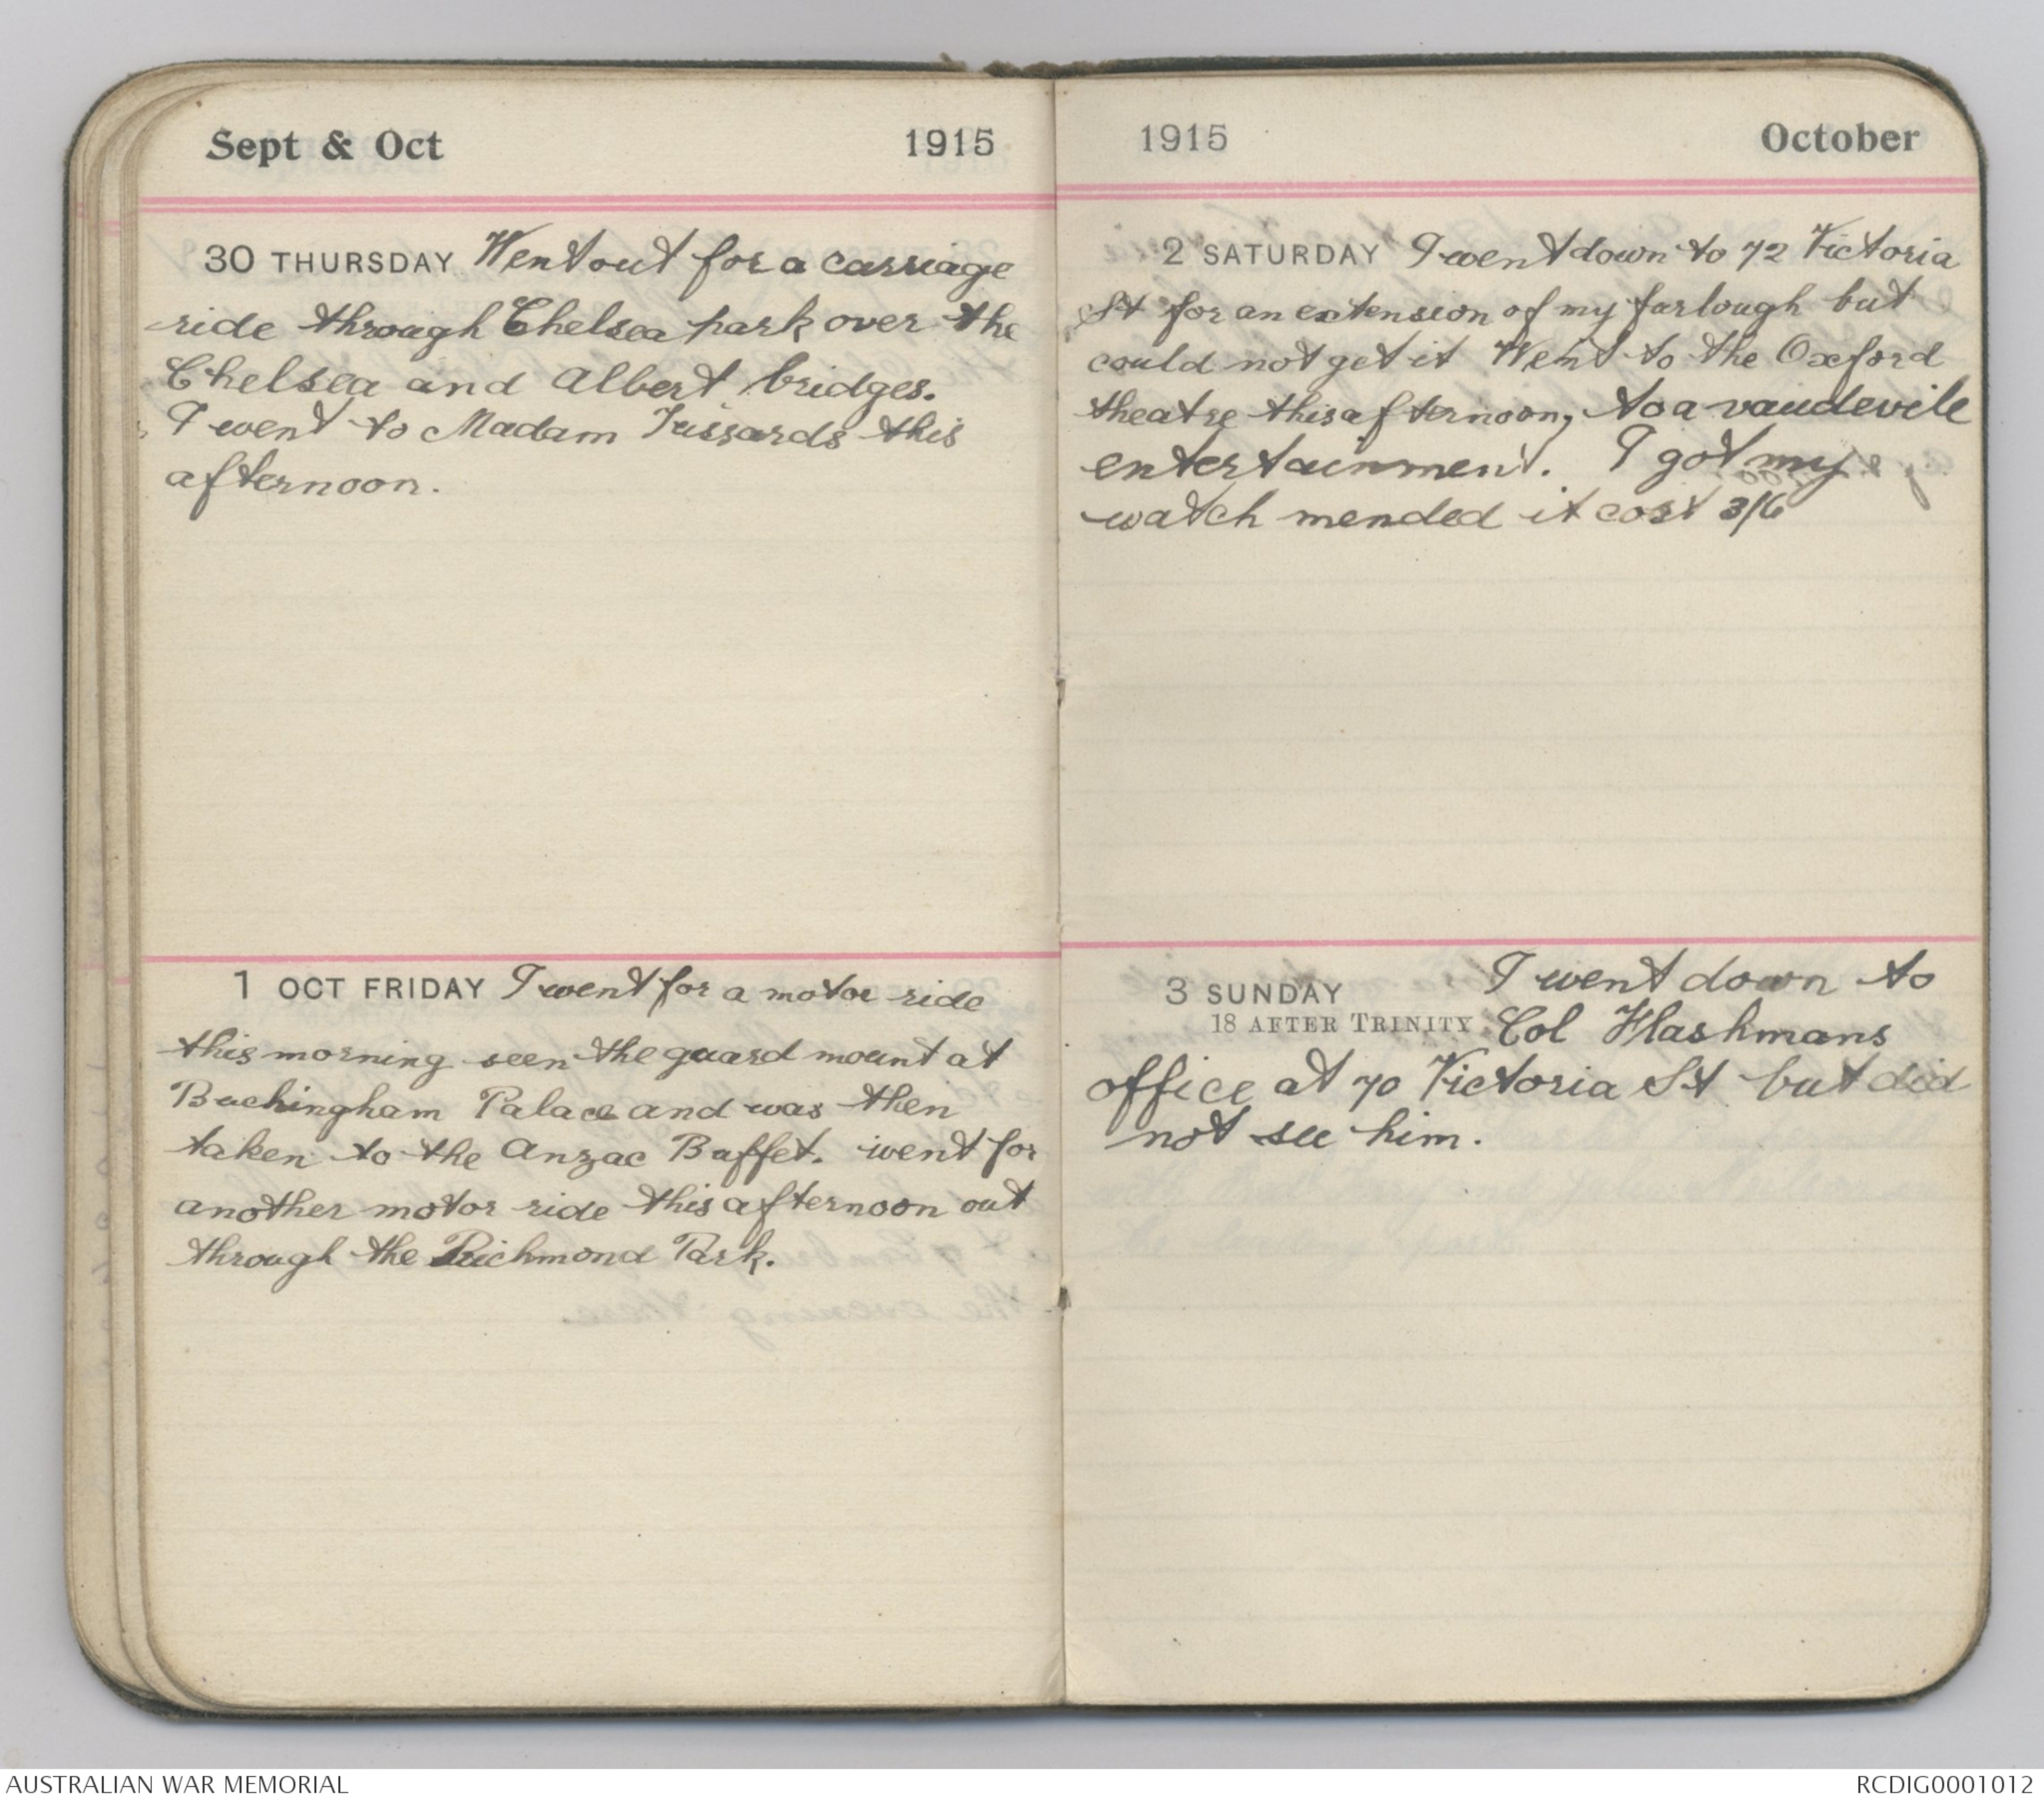 Sept & Oct 1915
30 THURSDAY Went out for a carriage
ride through Chelsea park over the
Chelsea and Albert bridges.
I went to Madam Tussards this
afternoon.
1 OCT FRIDAY I went for a motor ride
this morning seen the guard mount at
Buckingham Palace and was then
taken to the Anzac Buffet. went for
another motor ride this afternoon out
through the Richmond Park.
1915 October
2 SATURDAY I went down to 72 Victoria
St for an extension of my furlough but
could not get it Went to the Oxford
theatre this afternoon, to a vaudevile
entertainment. I got my
watch mended it cost 3/6
3 SUNDAY I went down to
18 AFTER TRINITY Col Flashmans
office at 70 Victoria St but did
not see him.
AUSTRALIAN WAR MEMORIAL RCDIG0001012